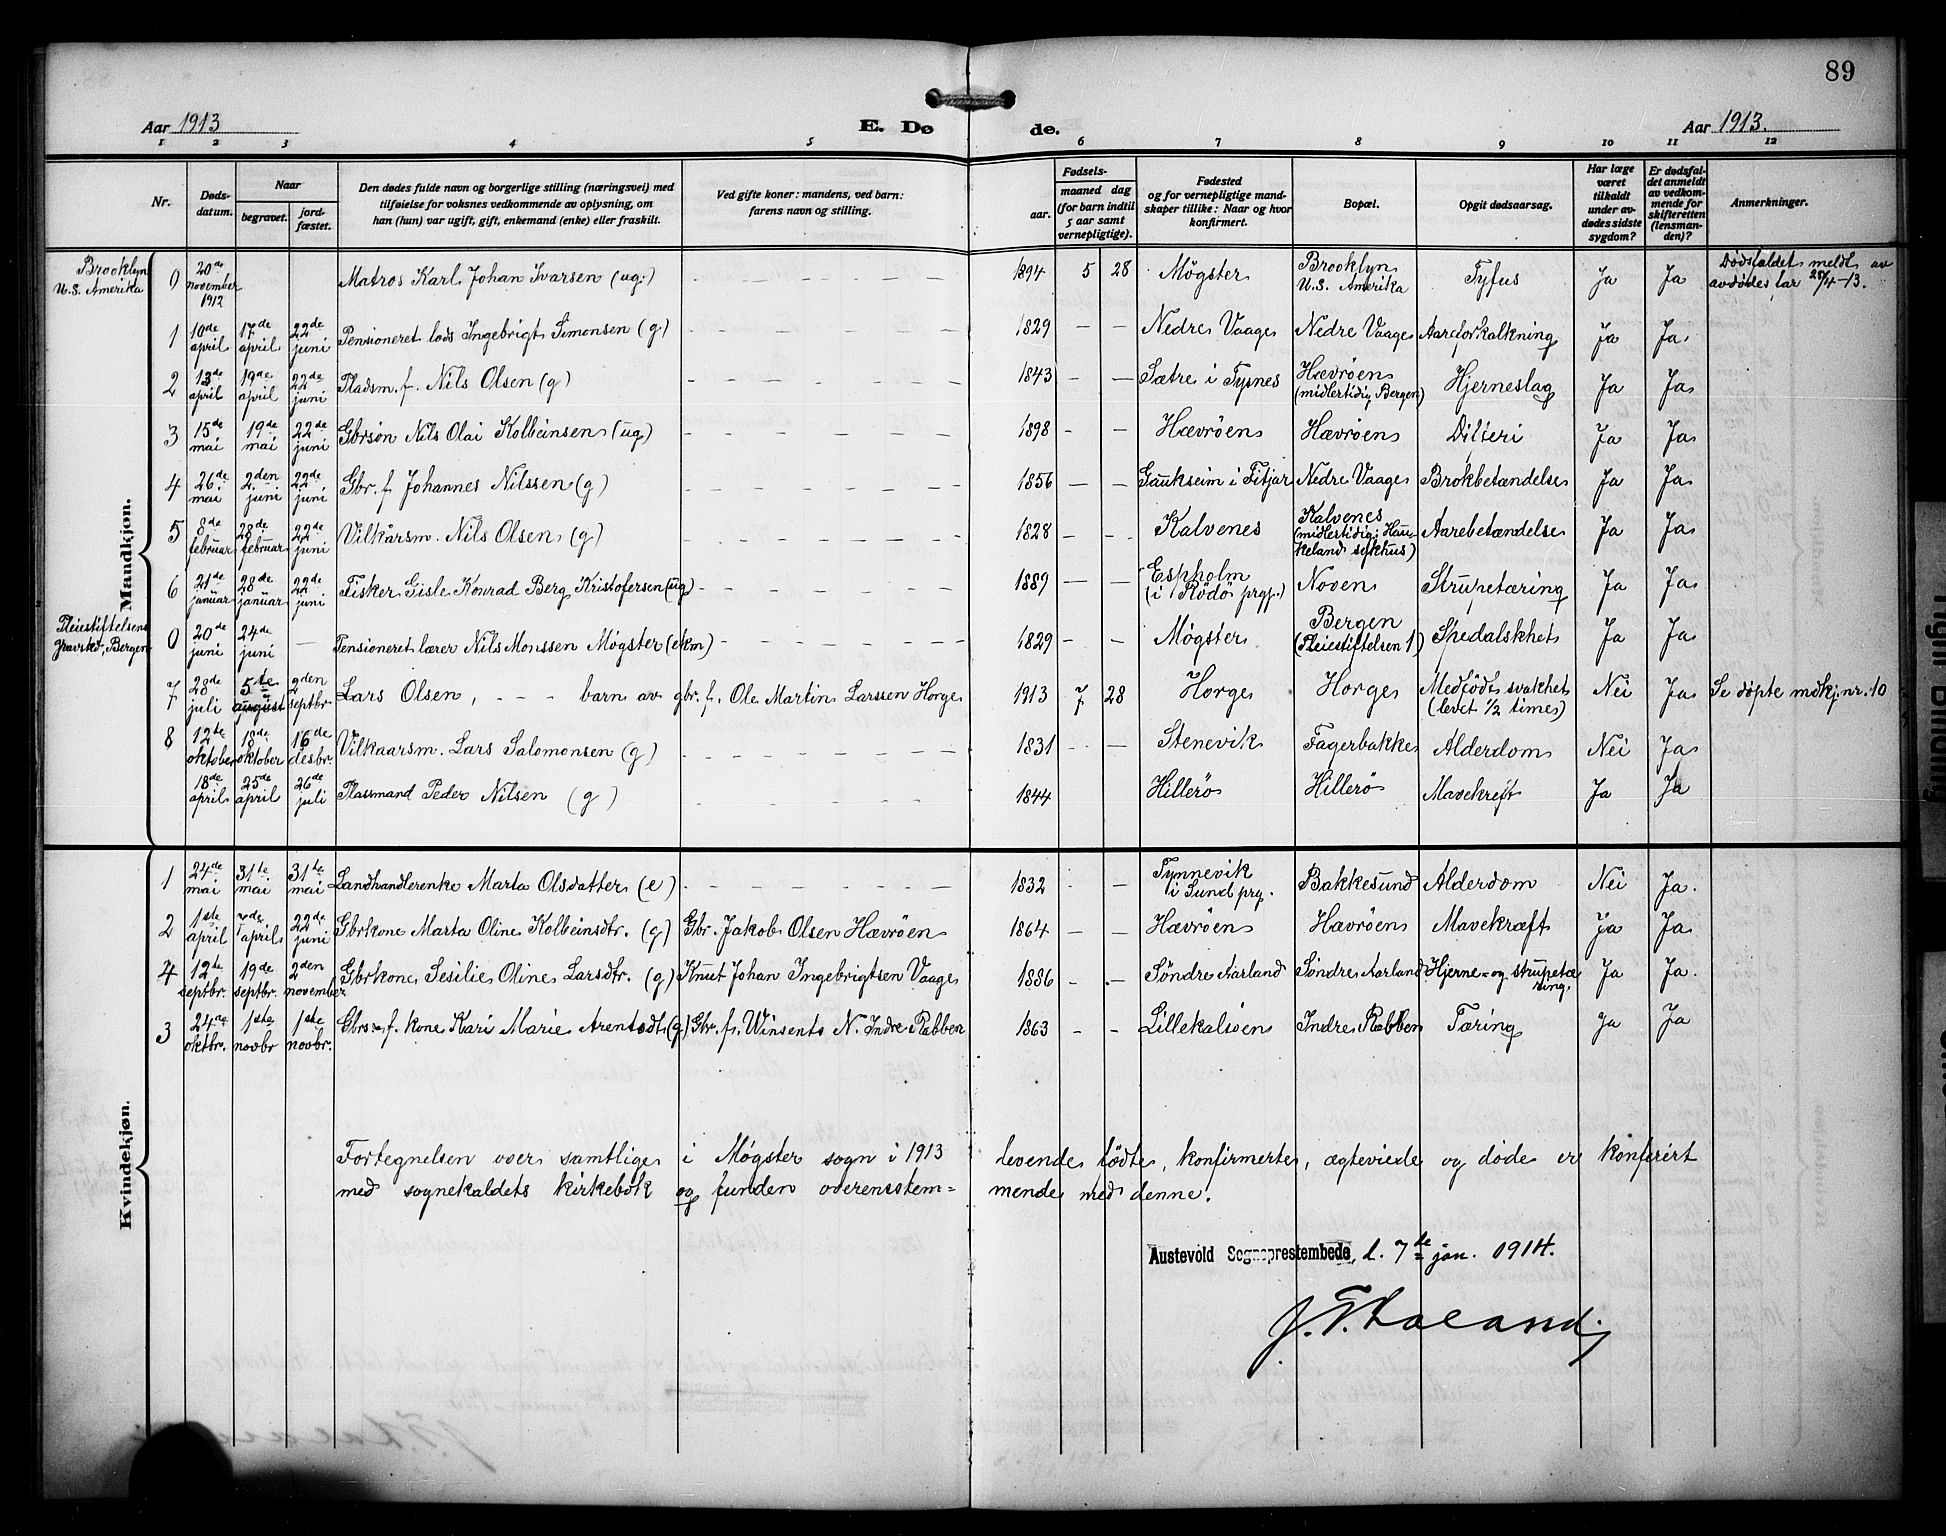 89
Aar 1913 E. Dø de. Aar 1913.
1 2 3 4 5 6 7 8 9 10 11 12
Nr. Døds-datum. Naar begravet. jord-fæstet. Den dødes fulde navn og borgerlige stilling (næringsvei) med tilføielse for voksnes vedkommende av oplysning, om han (hun) var ugift, gift, enkemand (enke) eller fraskilt. Ved gifte koner: mandens, ved barn: farens navn og stilling. Fødsels- aar. maaned dag (for barn indtil 5 aar samt vernepligtige). Fødested og for vernepligtige mand-skaper tillike: Naar og hvor konfirmert. Bopæl. Opgit dødsaarsag. Har læge været tilkaldt under av-dødes sidste sygdom? Er dødsfal-det anmeldt av vedkom-mende for skifteretten (lensman-den)? Anmerkninger.
Mandkjøn.
Brooklyn U.S. Amerika 0 20de november 1912 Matros Karl Johan Ivarsen (ug.) 1894 5 28 Møgster Brooklyn U.S. Amerika Tyfus Ja Ja Dødsfaldet meldt av avdødes far 28/4-13.
1 10de april 17de april 22de juni Pensioneret lods Ingebrigt Simonsen (g) 1829 — — Nedre Vaage Nedre Vaage Aareforkalkning Ja Ja.
2 13de april 19de april 22de juni Pladsm. f. Nils Olsen (g) 1843 — — Sætre i Tysnes Hævrøen (midlertidig Bergen) Hjerneslag Ja Ja
3 15de mai 19de mai 22de juni Gbrsøn Nils Olai Kolbeinsen (ug) 1898 — — Hævrøen Hævrøen Difteri Ja Ja
4 26de mai 2den juni 22de juni Gbr. f. Johannes Nilssen (g) 1856 — — Gaukseim i Fitjar Nedre Vaage Brokbetændelse Ja Ja
5 8de februar 28de februar 22de juni Vilkårsm. Nils Olsen (g) 1828 — — Kalvenes Kalvenes (midlertidig: Hau-keland sykhus) Aarebetændelse Ja Ja
6 21de januar 28de januar 22de juni Fisker Gisle Konrad Berg Kristofersen (ug) 1889 — — Espholm (i Rødø prgj.) Noven Strupetæring Ja Ja
Pleiestiftelsens gravsted, Bergen 0 20de juni 24de juni — Pensioneret lærer Nils Monssen Møgster (ekm) 1829 — — Møgster Bergen (Pleiestiftelsen 1) Spedalskhet Ja Ja
7 28de juli 5te august 2den septbr. Lars Olsen, — — — barn av gbr. f. Ole Martin Larssen Horge 1913 7 28 Horge Horge Medfødt svakhet (levet 1/2 time) Nei Ja Se døpte mdkj. nr. 10
8 12te oktober 18de oktober 16de desbr. Vilkaarsm. Lars Salomonsen (g) 1831 — — Stenevik Fagerbakke Alderdom Nei Ja
18de april 25de april 26de juli Plassmand Peder Nilsen (g) 1844 Hillerø Hillerø Mavekreft Ja Ja
Kvindekjøn.
1 24de mai 31te mai 31te mai Landhandlerenke Marta Olsdatter (e) 1832 — — Tynnevik i Sund prg. Bakkesund Alderdom Nei Ja.
2 1ste april 7de april 22de juni Gbrkone Marta Oline Kolbeinsdtr. (g) Gbr. Jakob Olsen Hævrøen 1864 — — Hævrøen Hævrøen Mavekræft Ja Ja
4 12te septbr. 19de septbr. 2den november Gbrkone Sesilie Oline Larsdtr. (g) Knut Johan Ingebrigtsen Vaage 1886 — — Søndre Aarland Søndre Aarland Hjerne- og strupetæ ring. Ja Ja.
3 24de oktbr. 1ste novbr 1ste novbr. Gbrs. f. kone Kari Marie Arentsdt. (g) Gbr. f. Winsents N. Indre Rabben 1863 — — Lillekalsøen Indre Rabben Tæring Ja Ja
Fortegnelsen over samtlige i Møgster sogn i 1913 levende fødte, konfirmerte, ægteviede og døde er konferert
med sognekaldets kirkebok og funden overensstem= mende med denne.
Austevold Sogneprestembede, d. 7de jan. 1914.